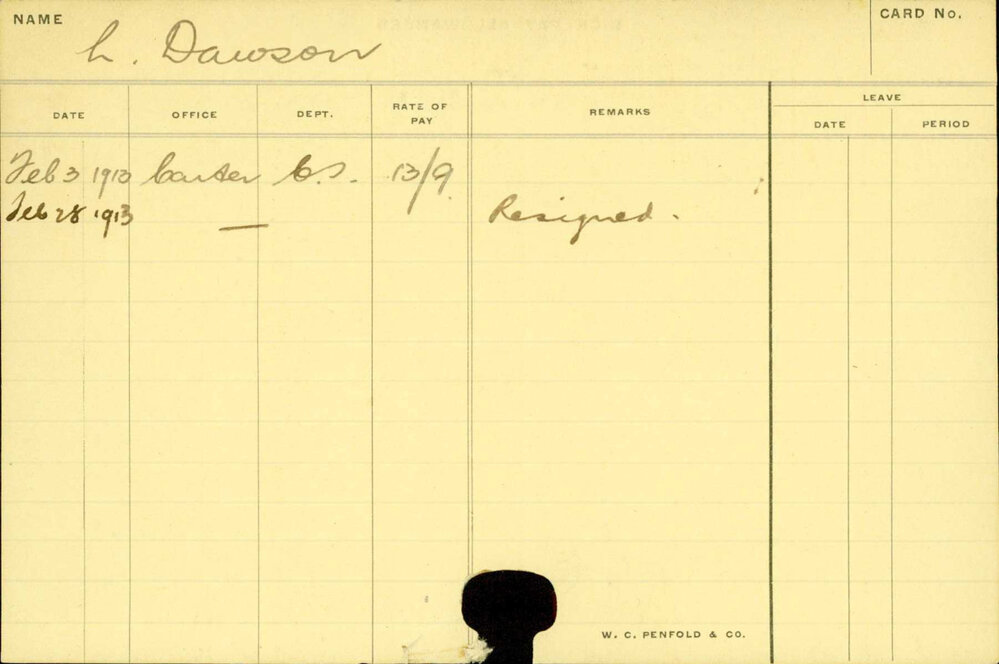 NAME
h. Dawson
CARD No.
DATE OFFICE DEPT. RATE OF PAY REMARKS LEAVE DATE PERIOD
Feb 3 1913 Carter C.S. 13/9
Feb 28 1913 — Resigned.
W. C. PENFOLD & CO.